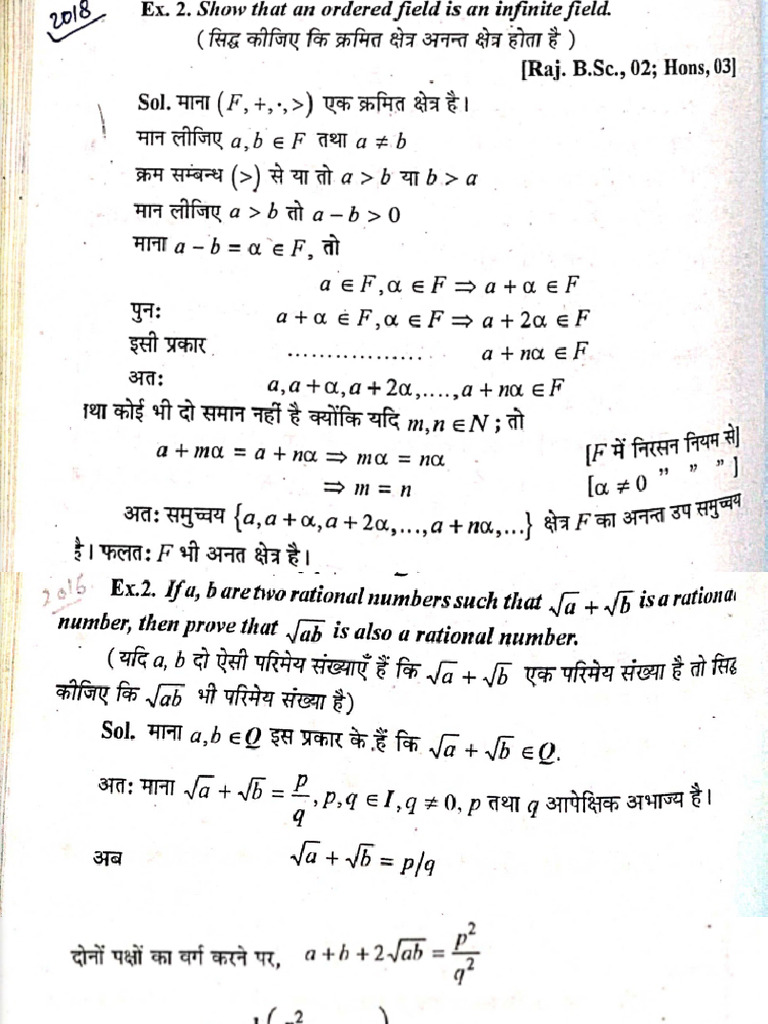 2018
Ex. 2. Show that an ordered field is an infinite field.
( सिद्ध कीजिए कि क्रमित क्षेत्र अनन्त क्षेत्र होता है )
[Raj. B.Sc., 02; Hons, 03]
Sol. माना (F, +, ·, >) एक क्रमित क्षेत्र है।
मान लीजिए a, b ∈ F तथा a ≠ b
क्रम सम्बन्ध (>) से या तो a > b या b > a
मान लीजिए a > b तो a − b > 0
माना a − b = α ∈ F, तो
a ∈ F, α ∈ F ⇒ a + α ∈ F
पुनः a + α ∈ F, α ∈ F ⇒ a + 2α ∈ F
इसी प्रकार ................. a + nα ∈ F
अतः a, a + α, a + 2α, ...., a + nα ∈ F
तथा कोई भी दो समान नहीं है क्योंकि यदि m, n ∈ N ; तो
a + mα = a + nα ⇒ mα = nα [F में निरसन नियम से]
⇒ m = n [α ≠ 0 ” ” ” ]
अतः समुच्चय {a, a + α, a + 2α, ..., a + nα, ...} क्षेत्र F का अनन्त उप समुच्चय
है। फलतः F भी अनत क्षेत्र है।
2016 Ex.2. If a, b are two rational numbers such that √a + √b is a rational
number, then prove that √ab is also a rational number.
(यदि a, b दो ऐसी परिमेय संख्याएँ हैं कि √a + √b एक परिमेय संख्या है तो सिद्ध
कीजिए कि √ab भी परिमेय संख्या है)
Sol. माना a, b ∈ Q इस प्रकार के हैं कि √a + √b ∈ Q.
अतः माना √a + √b = p/q, p, q ∈ I, q ≠ 0, p तथा q आपेक्षिक अभाज्य है।
अब √a + √b = p/q
दोनों पक्षों का वर्ग करने पर, a + b + 2√ab = p²/q²